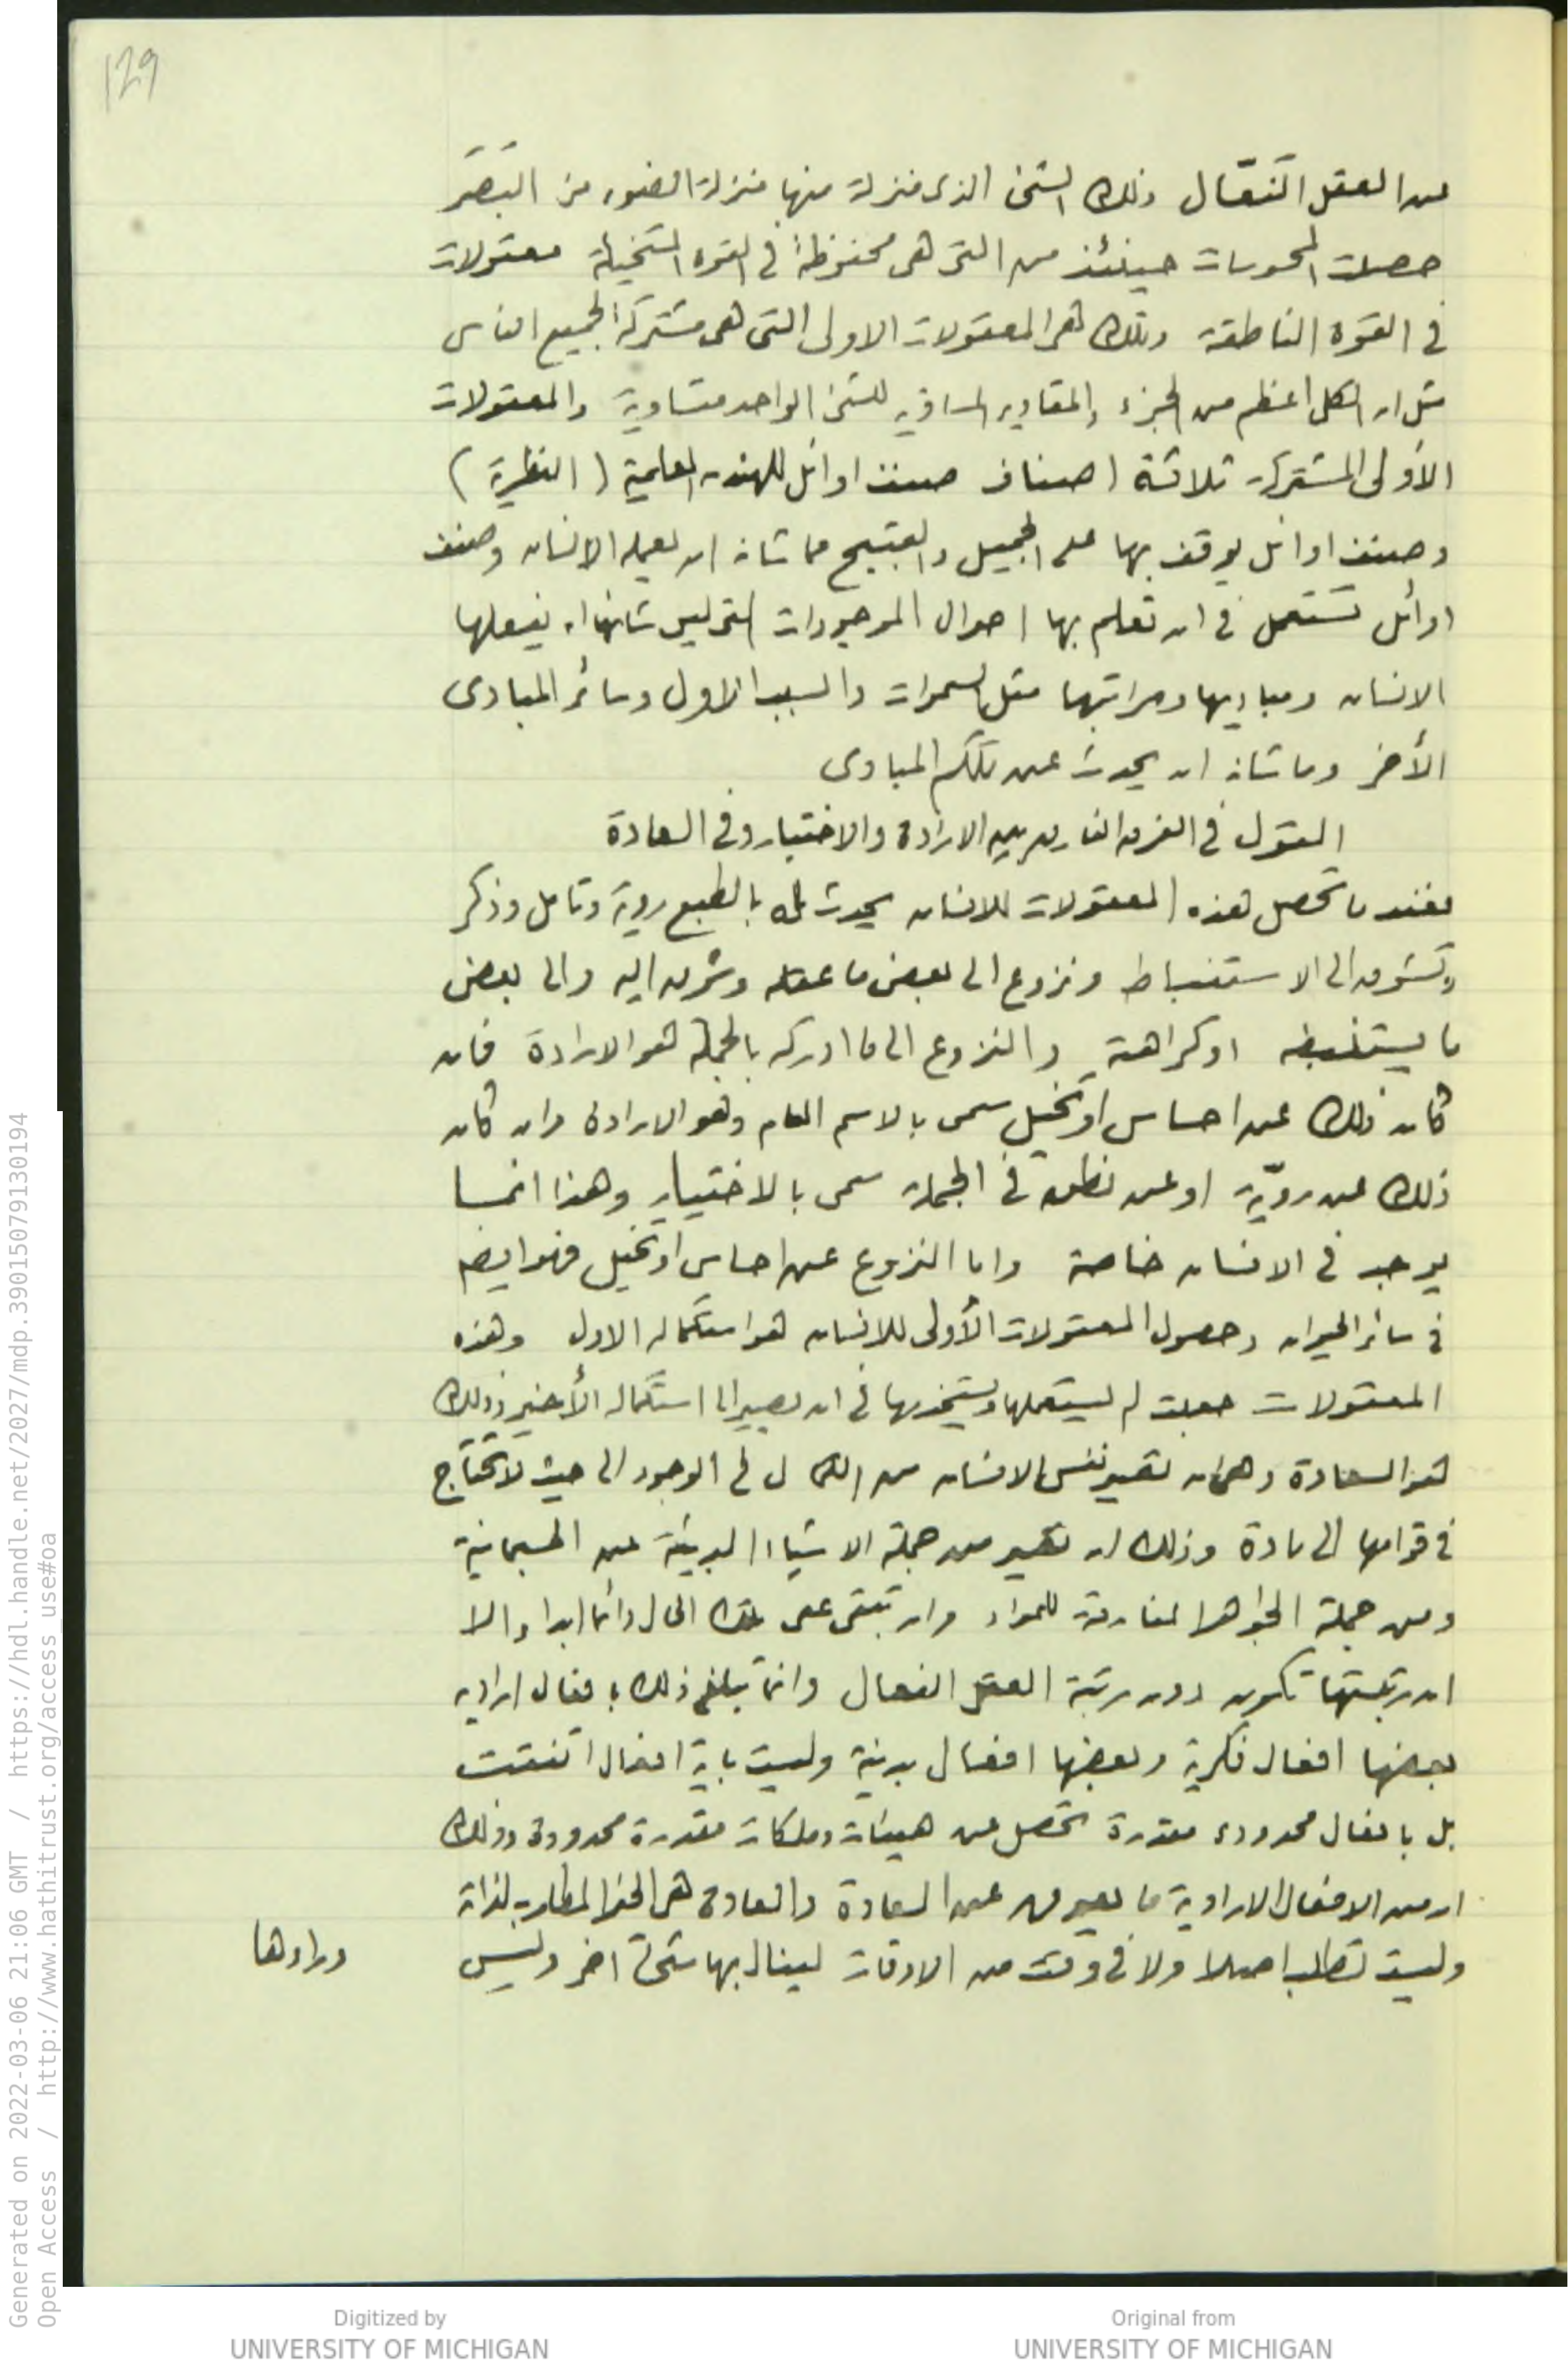 129
عن العقل الفعّال ذلك الشئ الذى منزلة منها منزلة الضوء من البصر
حصلت المحسوسات حينئذ من التى هى محفوظة فى القوه المتخيلة معقولات
فى القوه الناطقة وتلك هى المعقولات الاولى التى هى مشتركة لجميع الناس
مثل ان الكل اعظم من الجزء والمقادير المساويه للشئ الواحد متساوية والمعقولات
الأولى المشتركة ثلاثة اصناف صنف اوائل للهندسه العلمية (النظرية)
وصنف اوائل يوقف بها على الجميل والقبيح مما شانه ان يعمله الانسان وصنف
اوائل تستعمل فى ان تعلم بها احوال الموجودات التى ليس شانها ان يفعلها
الانسان ومباديها ومراتبها مثل السموات والسبب الاول وسائر المبادى
الأخر وما شانه ان يحدث عن تلك المبادى
القول فى الفرق بين الارادة والاختيار وفى السعادة
فعند ما تحصل هذه المعقولات للانسان يحدث له بالطبع روية وتامل وذكر
وتشوق الى الاستنباط ونزوع الى بعض ما عقله وشوق اليه والى بعض
ما يستنبطه او كراهته والنزوع الى ما ادركه بالجملة هو الارادة فان
كان ذلك عن احساس او تخيل سمى بالاسم العام وهو الارادة وان كان
ذلك عن رويّة او عن نطق فى الجملة سمى بالاختيار وهذا انما
يوجد فى الانسان خاصة واما النزوع عن احساس او تخيل فهو ايضا
فى سائر الحيوان وحصول المعقولات الأولى للانسان هو استكماله الاول وهذه
المعقولات جعلت له ليستعملها فى ان يصير الى استكماله الأخير وذلك
هو السعادة وهى ان تصير نفس الانسان من الكمال فى الوجود الى حيث لا تحتاج
فى قوامها الى مادة وذلك ان تصير من جملة الاشياء البريئة عن الجسمانية
ومن جملة الجواهر المفارقة للمواد وان تبقى على تلك الحال دائما ابدا والا
ان رتبتها تكون دون رتبة العقل الفعال وانما تبلغ ذلك بافعال اراديه
بعضها افعال فكرية وبعضها افعال بدنية وليست باية افعال اتفقت
بل بافعال محدوده مقدرة تحصل عن هيئات وملكات مقدرة محدودة وذلك
ان من الافعال الارادية ما يعوق عن السعادة والسعادة هى الخير المطلوب لذاته
وليست تطلب اصلا ولا فى وقت من الاوقات لينال بها شئ اخر وليس
وراءها
Generated on 2022-03-06 21:06 GMT / https://hdl.handle.net/2027/mdp.39015079130194
Open Access / http://www.hathitrust.org/access_use#oa
Digitized by
UNIVERSITY OF MICHIGAN
Original from
UNIVERSITY OF MICHIGAN